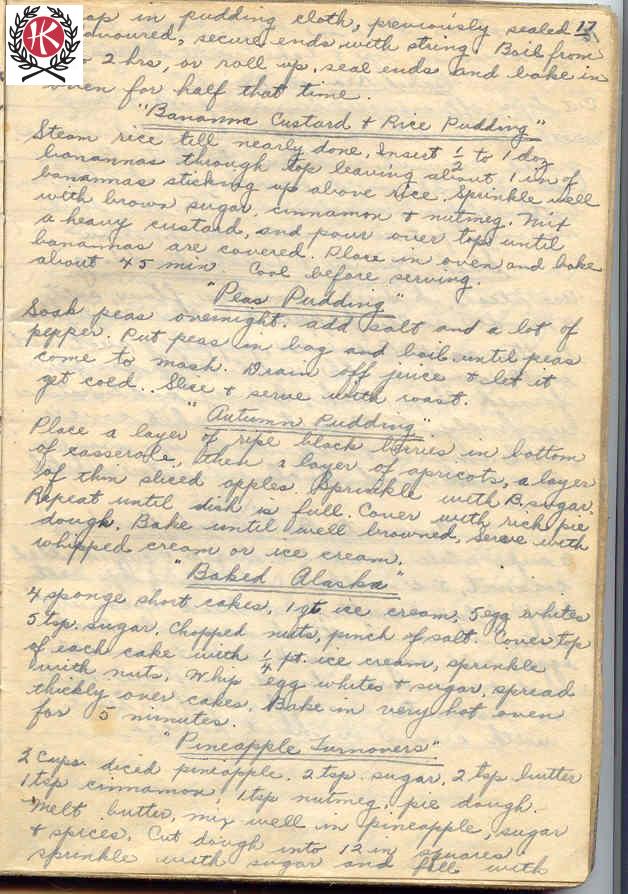 K
17
in pudding cloth, previously scalded
floured, secure ends with string Boil from
2 hrs, or roll up, seal ends and bake in
oven for half that time.
"Bananna Custard + Rice Pudding"
Steam rice till nearly done, Insert 1/2 to 1 doz
banannas through top leaving about 1 in of
banannas sticking up above rice. Sprinkle well
with brown sugar, cinnamon + nutmeg. Mix
a heavy custard, and pour over top until
banannas are covered. Place in oven and bake
about 45 min. Cool before serving.
"Peas Pudding"
Soak peas overnight. add salt and a lot of
pepper. Put peas in bag and boil until peas
come to mash. Drain off juice & let it
get cold. Slice + serve with roast.
"Autumn Pudding"
Place a layer of ripe black berries in bottom
of casserole, then a layer of apricots, a layer
of thin sliced apples. Sprinkle with B. sugar.
Repeat until dish is full. Cover with rich pie
dough. Bake until well browned, Serve with
whipped cream or ice cream.
"Baked Alaska"
4 sponge short cakes, 1 qt ice cream, 5 egg whites
5 tsp. sugar. Chopped nuts, pinch of salt. Cover top
of each cake with 1/4 pt. ice cream, sprinkle
with nuts. Whip egg whites + sugar. spread
thickly over cakes. Bake in very hot oven
for 5 minutes.
"Pineapple Turnovers"
2 cups diced pineapple. 2 tsp. sugar, 2 tsp butter
1 tsp cinnamon, 1 tsp nutmeg, pie dough.
Melt butter, mix well in pineapple, sugar
+ spices. Cut dough into 12 in squares
sprinkle with sugar and fill with